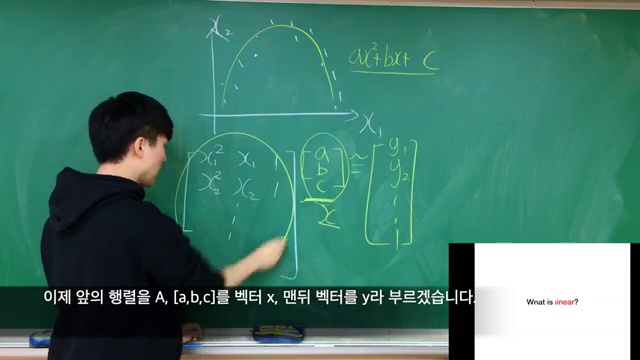 x₂
ax²+bx+ c
x₁
x₁² x₁ 1
x₂² x₂ 1
a
b
c
≈
y₁
y₂
x
이제 앞의 행렬을 A, [a,b,c]를 벡터 x, 맨뒤 벡터를 y라 부르겠습니다.
What is linear?